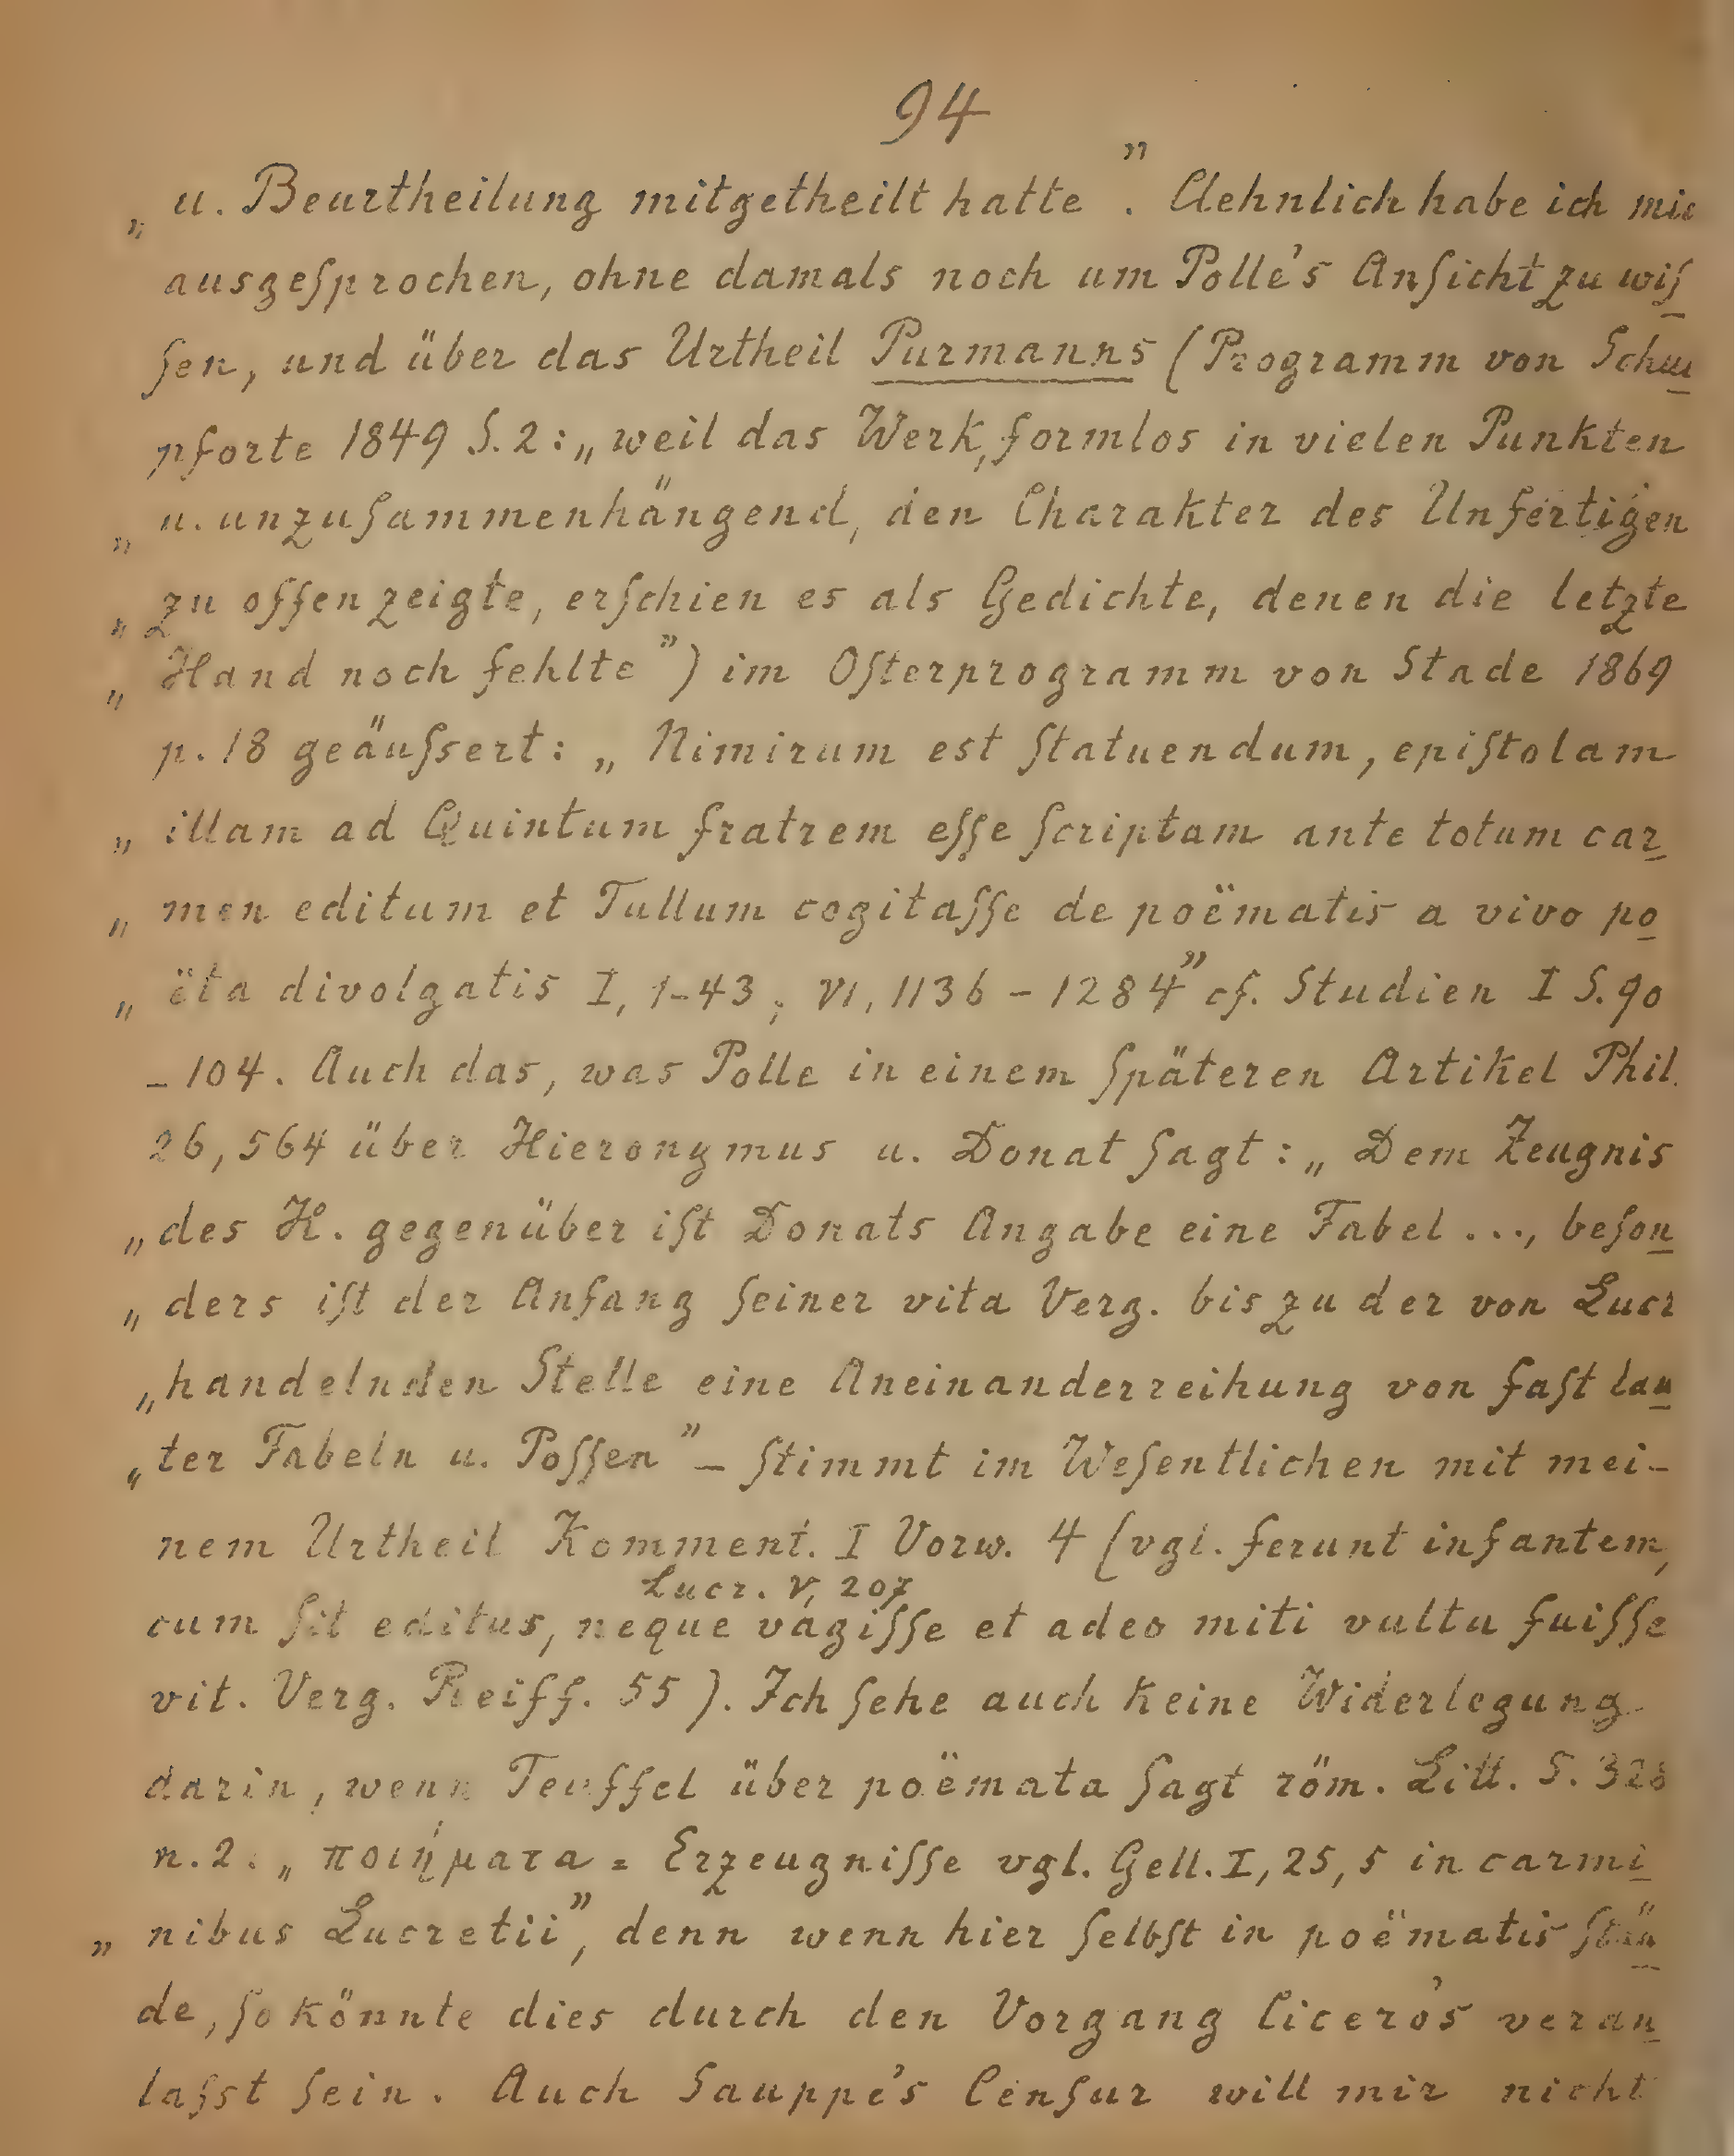 94
„ u. Beurtheilung mitgetheilt hatte”. Aehnlich habe ich mic
ausgeſprochen, ohne damals noch um Polle's Anſicht zu wiſ
ſen, und über das Urtheil Purmanns (Programm von Schu
pforte 1849 S. 2: „weil das Werk, formlos in vielen Punkten
„ u. unzuſammenhängend, den Charakter des Unfertigen
„ zu offen zeigte, erſchien es als Gedichte, denen die letzte
„ Hand noch fehlte”) im Oſterprogramm von Stade 1869
p. 18 geäuſsert: „Nimirum est ſtatuendum, epiſtolam
„ illam ad Quintum fratrem eſſe ſcriptam ante totum car
„ men editum et Tullum cogitaſſe de poëmatis a vivo po
„ ëta divolgatis I, 1-43; VI, 1136 – 1284” cf. Studien I S. 90
– 104. Auch das, was Polle in einem ſpäteren Artikel Phil.
26, 564 über Hieronymus u. Donat ſagt: „Dem Zeugnis
„ des H. gegenüber iſt Donats Angabe eine Fabel ..., beſon
„ ders iſt der Anfang ſeiner vita Verg. bis zu der von Lucr
„ handelnden Stelle eine Aneinanderreihung von faſt lau
„ ter Fabeln u. Poſſen” – ſtimmt im Weſentlichen mit mei-
nem Urtheil Komment. I Vorw. 4 (vgl. ferunt infantem,
Lucr. V, 207
cum ſit editus, neque vagiſſe et adeo miti vultu fuiſſe
vit. Verg. Reiff. 55). Ich ſehe auch keine Widerlegung
darin, wenn Teuffel über poëmata ſagt röm. Litt. S. 328
n. 2. „ποιήματα = Erzeugniſſe vgl. Gell. I, 25, 5 in carmi
„ nibus Lucretii”, denn wenn hier ſelbſt in poëmatis ſtän
de, ſo könnte dies durch den Vorgang Cicero's veran
laſst ſein. Auch Sauppe's Cenſur will mir nicht